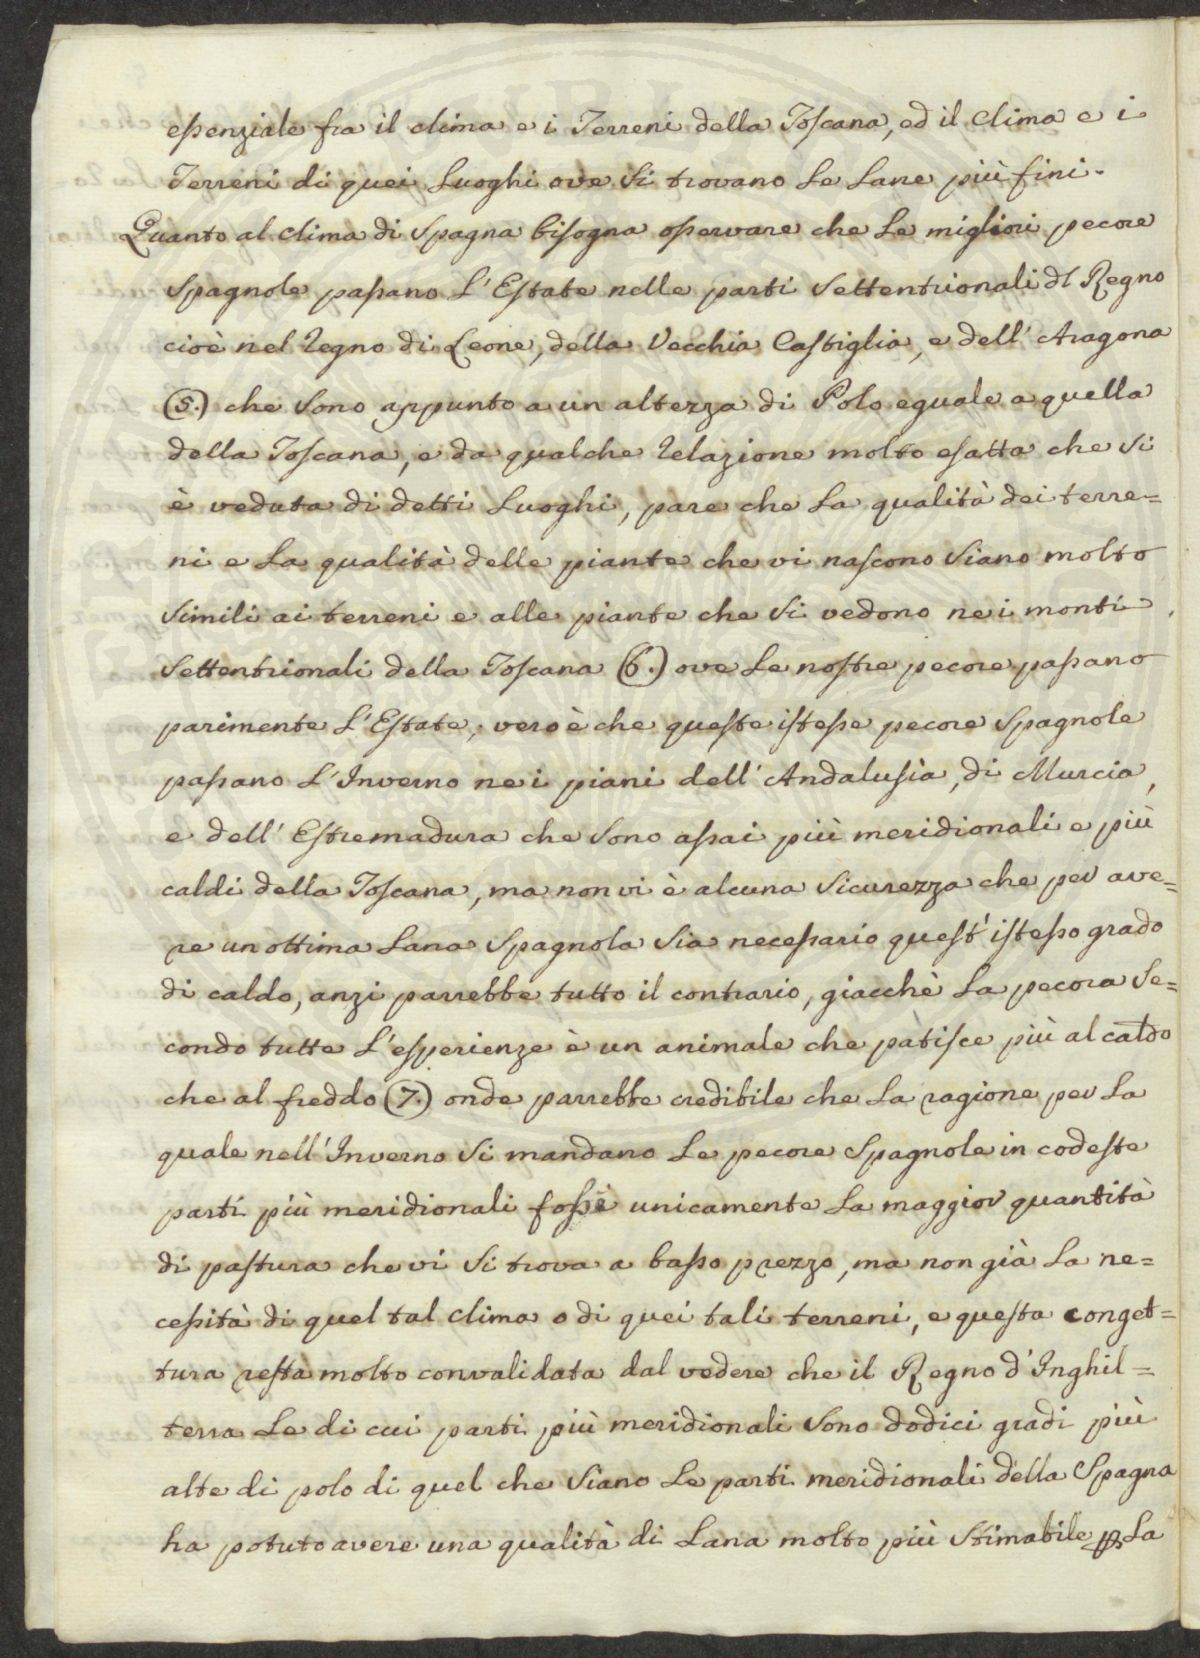 essenziale fra il clima e i Terreni della Toscana, ed il Clima e i
Terreni di quei Luoghi ove si trovano le Lane più fini.
Quanto al clima di Spagna bisogna osservare che le migliori pecore
Spagnole passano l'Estate nelle parti Settentrionali dl Regno
cioè nel Regno di Leone, della Vecchia Castiglia, e dell'Aragona
(5.) che sono appunto a un altezza di Polo eguale a quella
della Toscana, e da qualche Relazione molto esatta che si
è veduta di detti Luoghi, pare che la qualità dei terre=
ni e la qualità delle piante che vi nascono siano molto
simili ai terreni e alle piante che si vedono nei monti
Settentrionali della Toscana (6.) ove le nostre pecore passano
parimente l'Estate; vero è che queste istesse pecore Spagnole
passano l'Inverno nei piani dell'Andalusia, di Murcia,
e dell'Estremadura che sono assai più meridionali e più
caldi della Toscana, ma non vi è alcuna sicurezza che per ave=
re un ottima Lana Spagnola sia necessario quest'istesso grado
di caldo, anzi parrebbe tutto il contrario, giacchè la pecora se=
condo tutte l'esperienze è un animale che patisce più al caldo
che al freddo (7.) onde parrebbe credibile che la ragione per la
quale nell'Inverno si mandano le pecore Spagnole in codeste
parti più meridionali fosse unicamente la maggior quantità
di pastura che vi si trova a basso prezzo, ma non già la ne=
cessità di quel tal clima o di quei tali terreni, e questa conget=
tura resta molto convalidata dal vedere che il Regno d'Inghil=
terra le di cui parti più meridionali sono dodici gradi più
alte di polo di quel che siano le parti meridionali della Spagna
ha potuto avere una qualità di Lana molto più stimabile p la